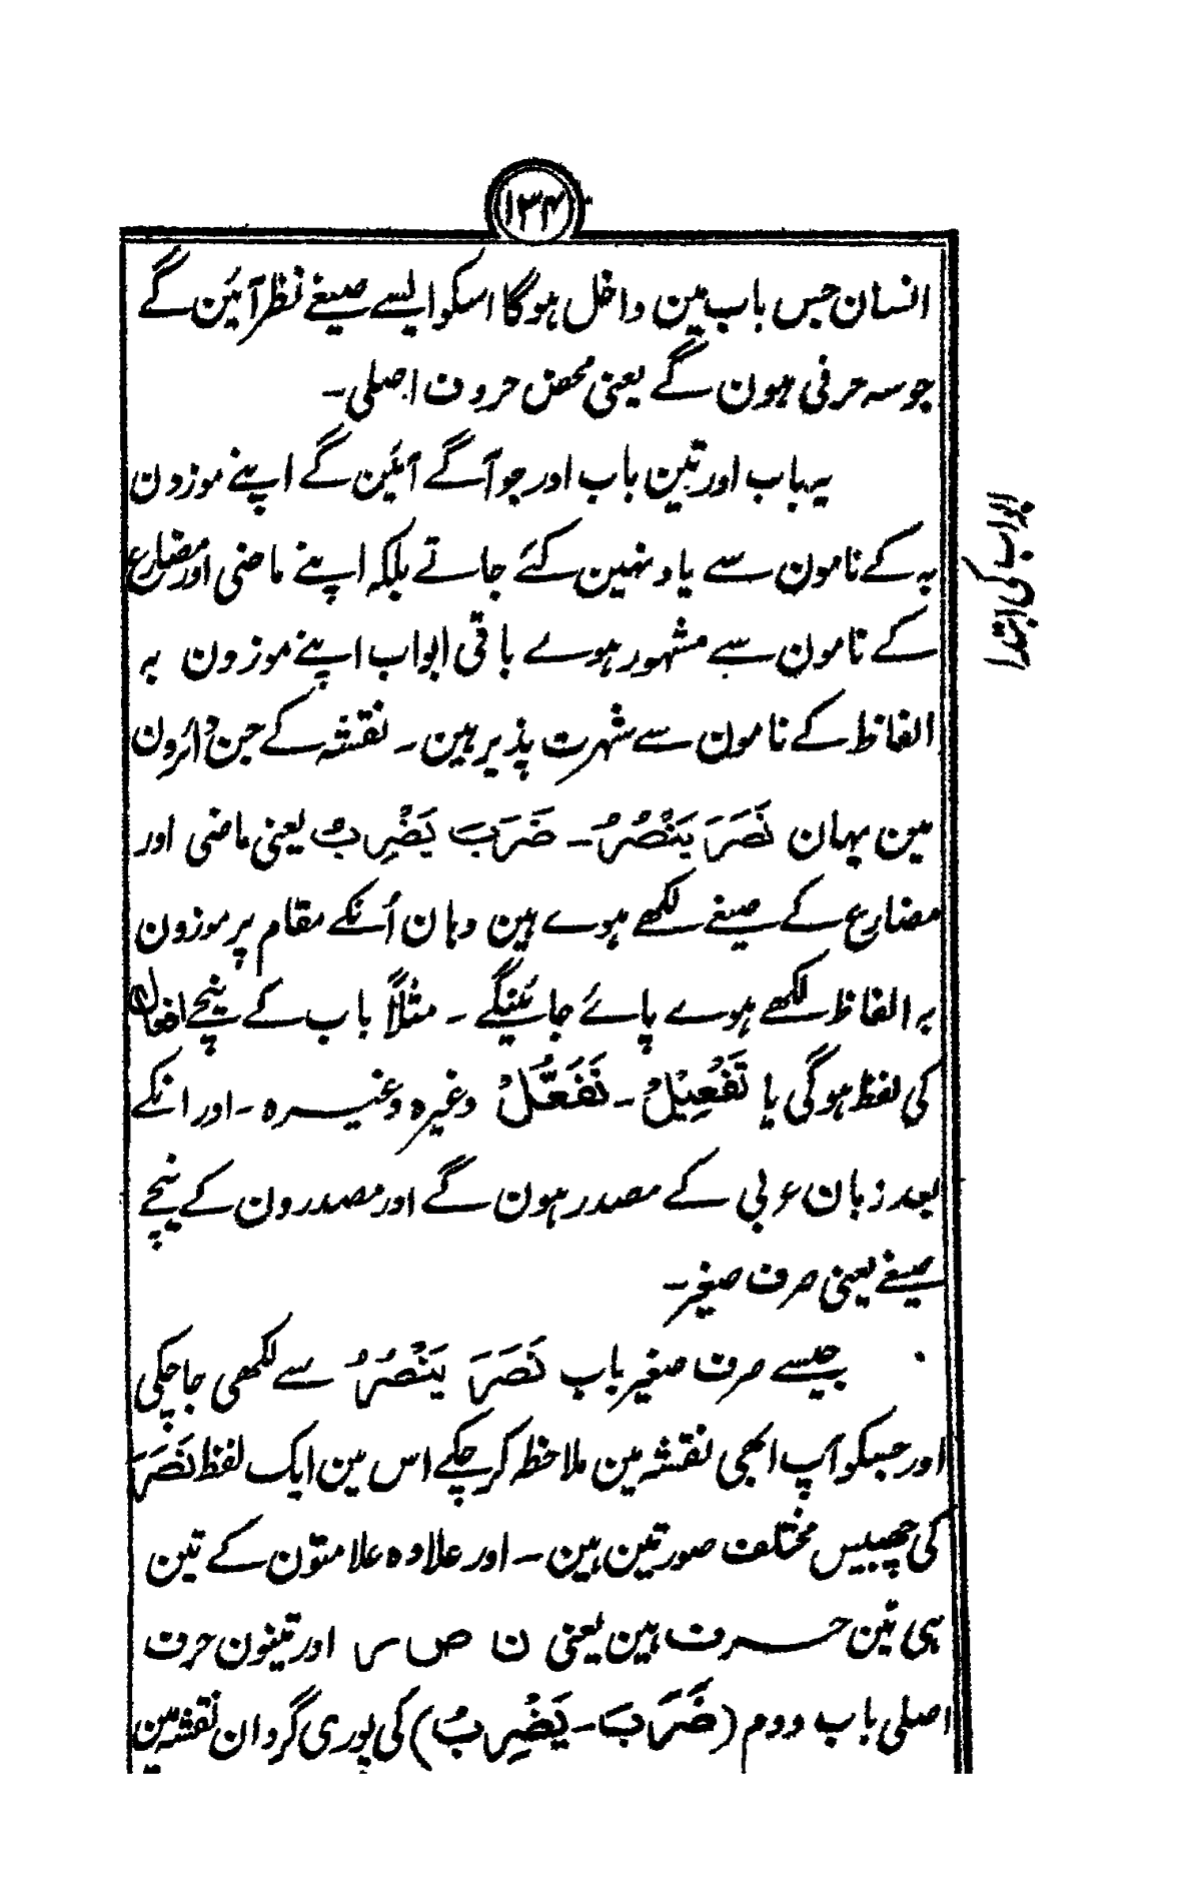 ۱۳۴
انسان جس باب مین داخل ہوگا اسکو ایسے صیغے نظر آئین گے
جو سہ حرفی ہون گے یعنی محض حروف اصلی۔
یہ باب اور تین باب اور جو آگے آئین گے اپنے موزون
بہ کے نامون سے یاد نہین کئے جاتے بلکہ اپنے ماضی اور مضارع
کے نامون سے مشہور ہوے باقی ابواب اپنے موزون بہ
الفاظ کے نامون سے شہرت پذیر ہین۔ نقشہ کے جن دائرون
مین یہان نَصَرَ یَنْصُرُ۔ ضَرَبَ یَضْرِبُ یعنی ماضی اور
مضارع کے صیغے لکھے ہوے ہین وہان اُنکے مقام پر موزون
بہ الفاظ لکھے ہوے پائے جائینگے۔ مثلاً باب کے نیچے افعال
کی لفظ ہوگی یا تَفْعِیْلْ۔ تَفَعُّلْ وغیرہ وغیرہ۔ اور انکے
بعد زبان عربی کے مصدر ہون گے اور مصدرون کے نیچے
صیغے یعنی صرف صغیر۔
جیسے صرف صغیر باب نَصَرَ یَنْصُرُ سے لکھی جاچکی
اور جسکو آپ ابھی نقشہ مین ملاحظہ کرچکے اس مین ایک لفظ نَصَرَ
کی چھبیس مختلف صورتین ہین۔ اور علاوہ علامتون کے تین
ہی تین حرف ہین یعنی ن ص ر اور تینون حرف
اصلی باب دوم (ضَرَبَ۔یَضْرِبُ) کی پوری گردان نقشہ مین
ابواب کی ابتدا